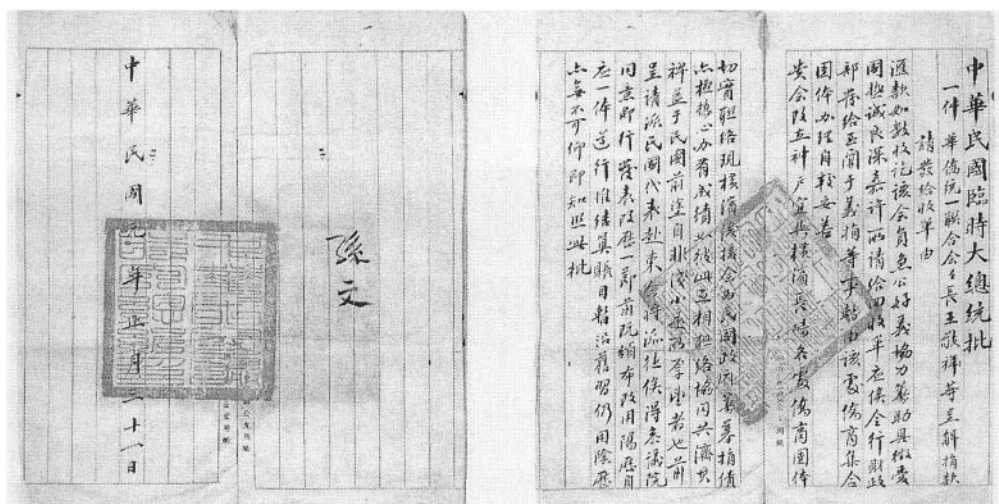 中華民國臨時大總統批
一件華僑統一聯合會會長王敬祥等呈解捐款
請發給收單由
匯款如數收訖該會員急公好義協力籌助具徵愛
國熱誠良深嘉許所請給回收單應俟令行財政
部發給至關于義捐等事務由該處僑商集合
團體办理自較妥善
貴會設立神戶宜與橫濱長崎各處僑商團體
切實聯絡現橫濱後援會為民國政府籌募捐債
亦極熱心办有成績如彼此互相聯絡協同共濟其
裨益于民國前途自非淺小是所厚望者也并
呈請派民國代表赴東一節將派往俟得參議院
同意即行發表改歷一節前既頒布改用陽歷自
應一体遵行惟結算賬目暫沿舊習仍用陰歷
亦無不可仰即知照此批
孫文
中華民國元年正月三十一日